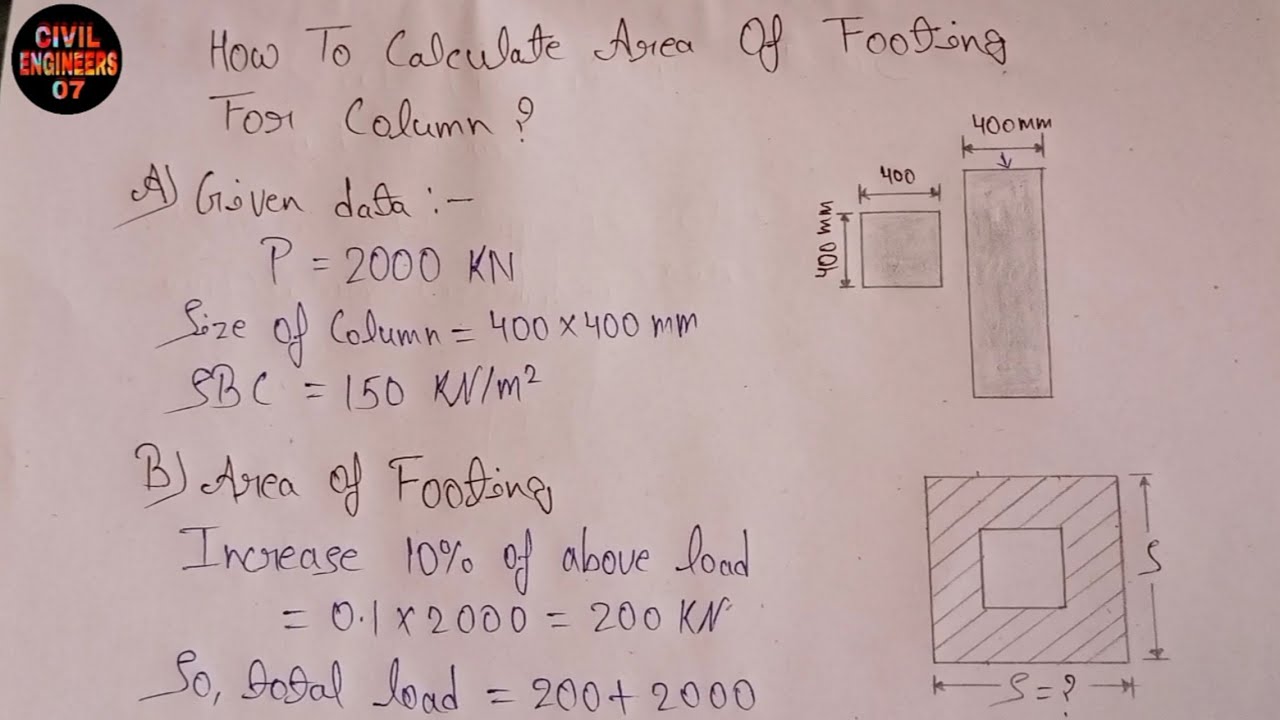 CIVIL
ENGINEERS
07
How To Calculate Area Of Footing
For Column ?
A) Given data :-
P = 2000 KN
Size of Column = 400 × 400 mm
SBC = 150 KN/m²
400
400 mm
400mm
B) Area of Footing
Increase 10% of above load
= 0.1 × 2000 = 200 KN
So, total load = 200 + 2000
S
S = ?